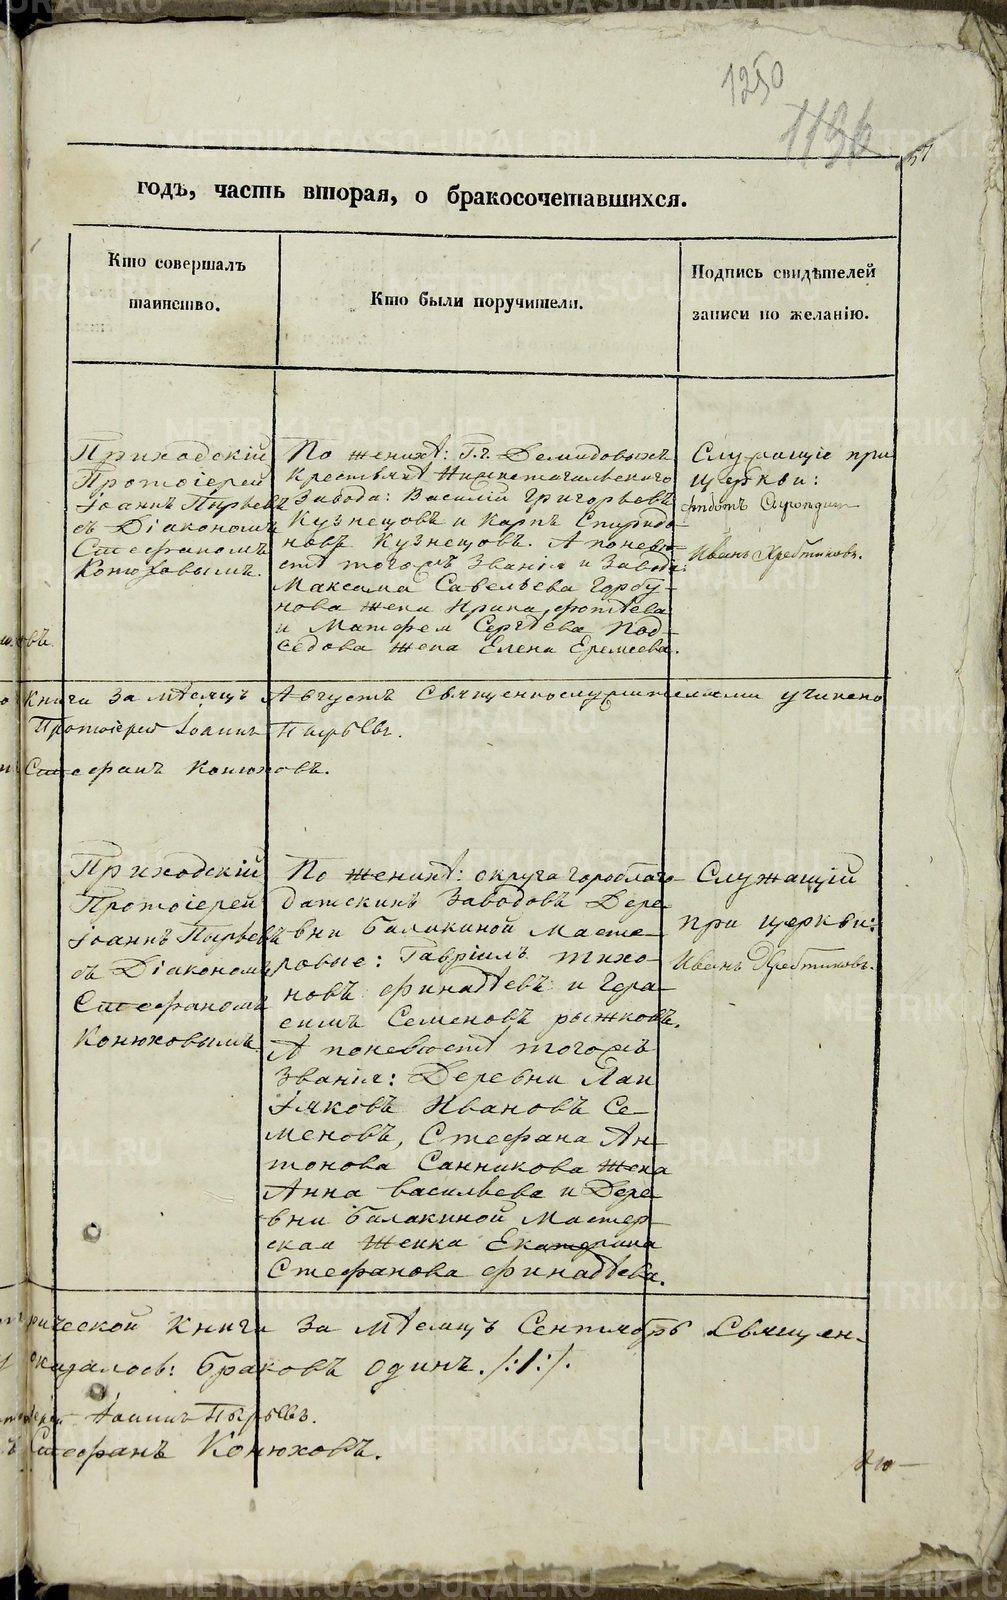 1250
1136
57
годъ, часть вторая, о бракосочетавшихся.
Кто совершалъ
таинство.
Кто были поручители.
Подпись свидѣтелей
записи по желанію.
Приходскій
Протоіерей
Іоаннъ Пырьевъ
съ Діакономъ
Стефаномъ
Конюховымъ.
По женихѣ: Г.г. Демидовыхъ
Крестьяне Нижнетагильскаго
Завода: Василій Григорьевъ
Кузнецовъ и Карпъ Спиридо-
новъ Кузнецовъ. А по невѣ-
стѣ тогожъ Званія и Завода:
Максима Савельева Горбу-
нова жена Ирина Фотѣева
и Матфея Сергѣева Под-
сѣдова жена Елена Еремеева.
Служащіе при
церкви:
Иванъ Хребтиковъ.
овъ
Книги За мѣсяцъ Августъ Священнослужителями учинено
Протоіерей Іоаннъ Пырьевъ.
Стефанъ Конюховъ.
Приходскій
Протоіерей
Іоаннъ Пырьевъ
съ Діакономъ
Стефаномъ
Конюховымъ
По женихѣ: округа Гороблаго-
датскихъ Заводовъ Дере-
вни Балакиной Масте-
ровые: Гавріилъ Тихо-
новъ Финадѣевъ и Гера-
симъ Семеновъ Рыжковъ.
А по невѣстѣ тогожъ
Званія: Деревни Лаи
Іяковъ Ивановъ Се-
меновъ, Стефана Ан-
тонова Санникова Жена
Анна Васильева и Дере-
вни Балакиной Мастер-
ская Женка Екатерина
Стефанова Финадѣева.
Служащій
при церкви:
Иванъ Хребтиковъ.
рической Книги За мѣсяцъ Сентябрь Священ-
оказалось: браковъ одинъ. /:1:/.
Іоаннъ Пырьевъ.
Стефанъ Конюховъ.